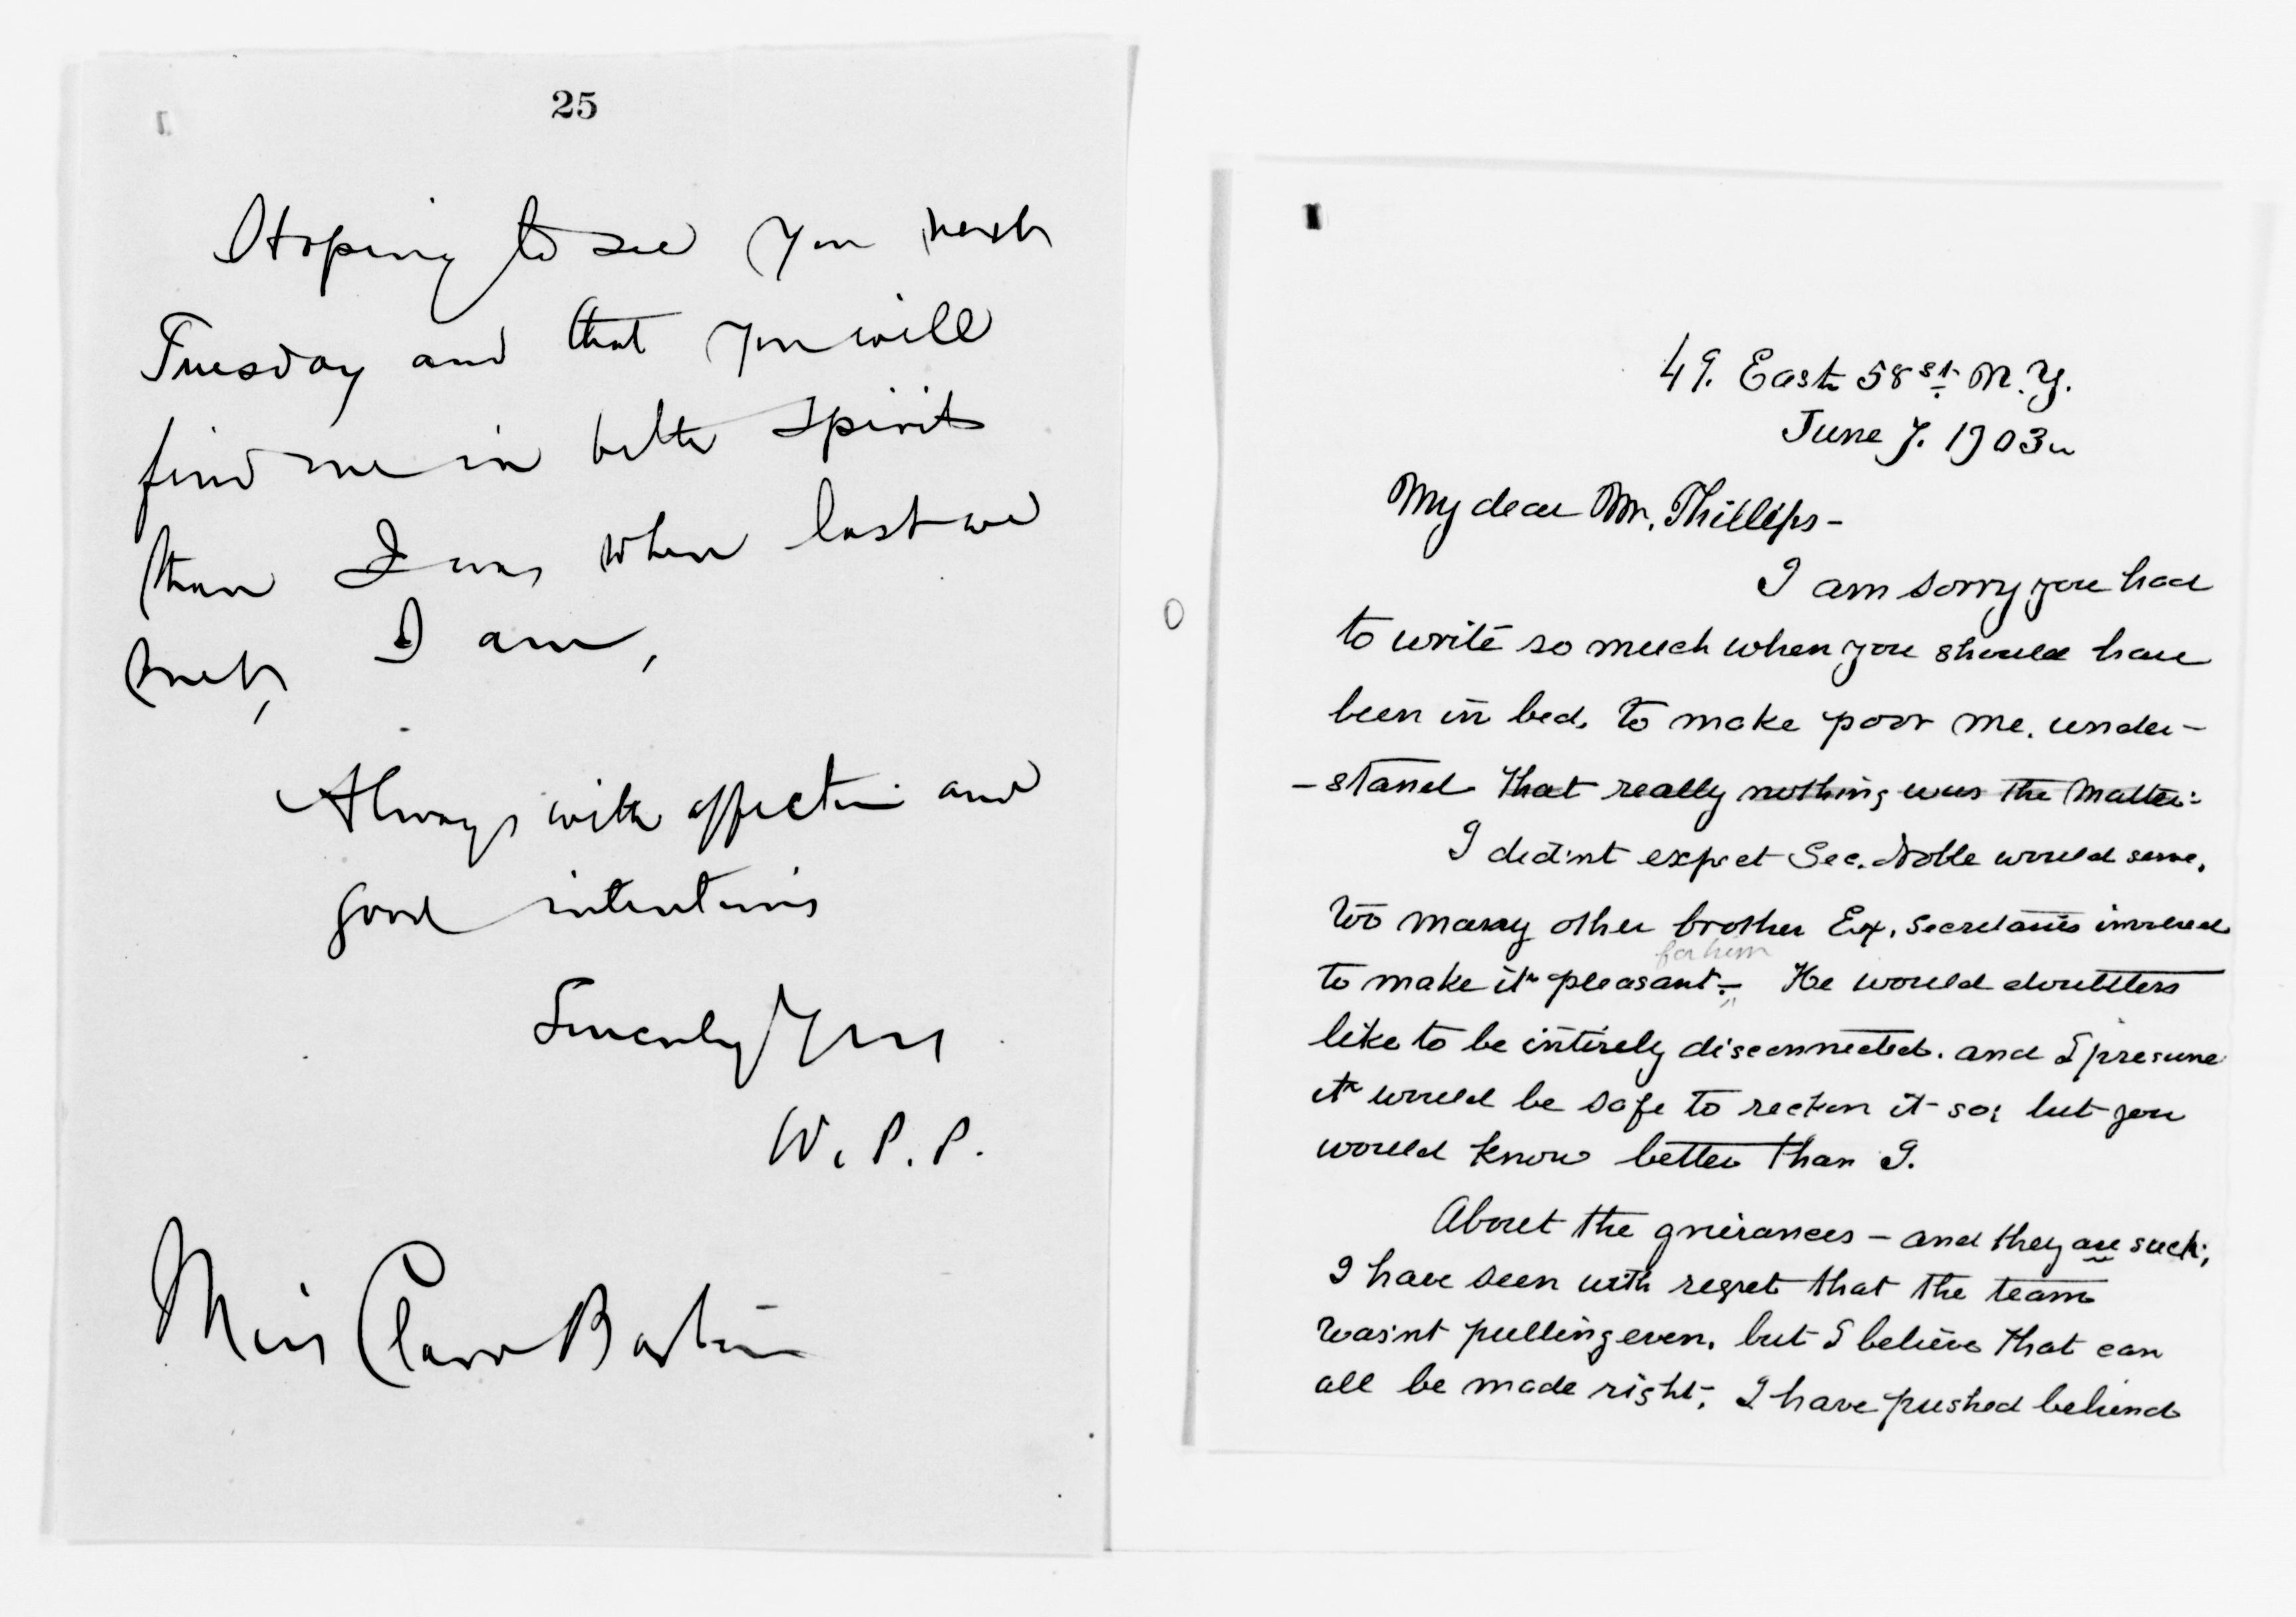 25
Hoping to see you next
Tuesday and that you will
find me in better spirits
than I was when last we
met, I am,
Always with affection and
good intentions
Sincerely Yours
W. P. P.
Miss Clara Barton
49. East 58 st. N.Y.
June 7. 1903
My dear Mr. Phillips-
I am sorry you had
to write so much when you should have
been in bed, to make poor me, under-
-stand that really nothing was the matter:
I did'nt expect Sec. Noble would serve,
Too many other brother Ex. Secretaries involved
for him
to make it pleasant - He would doubtless
like to be intirely disconnected. and I presume
it would be safe to reckon it so; but you
would know better than I.
About the grievances - and they are such;
I have seen with regret that the team
was'nt pulling even, but I believe that can
all be made right; I have pushed behind